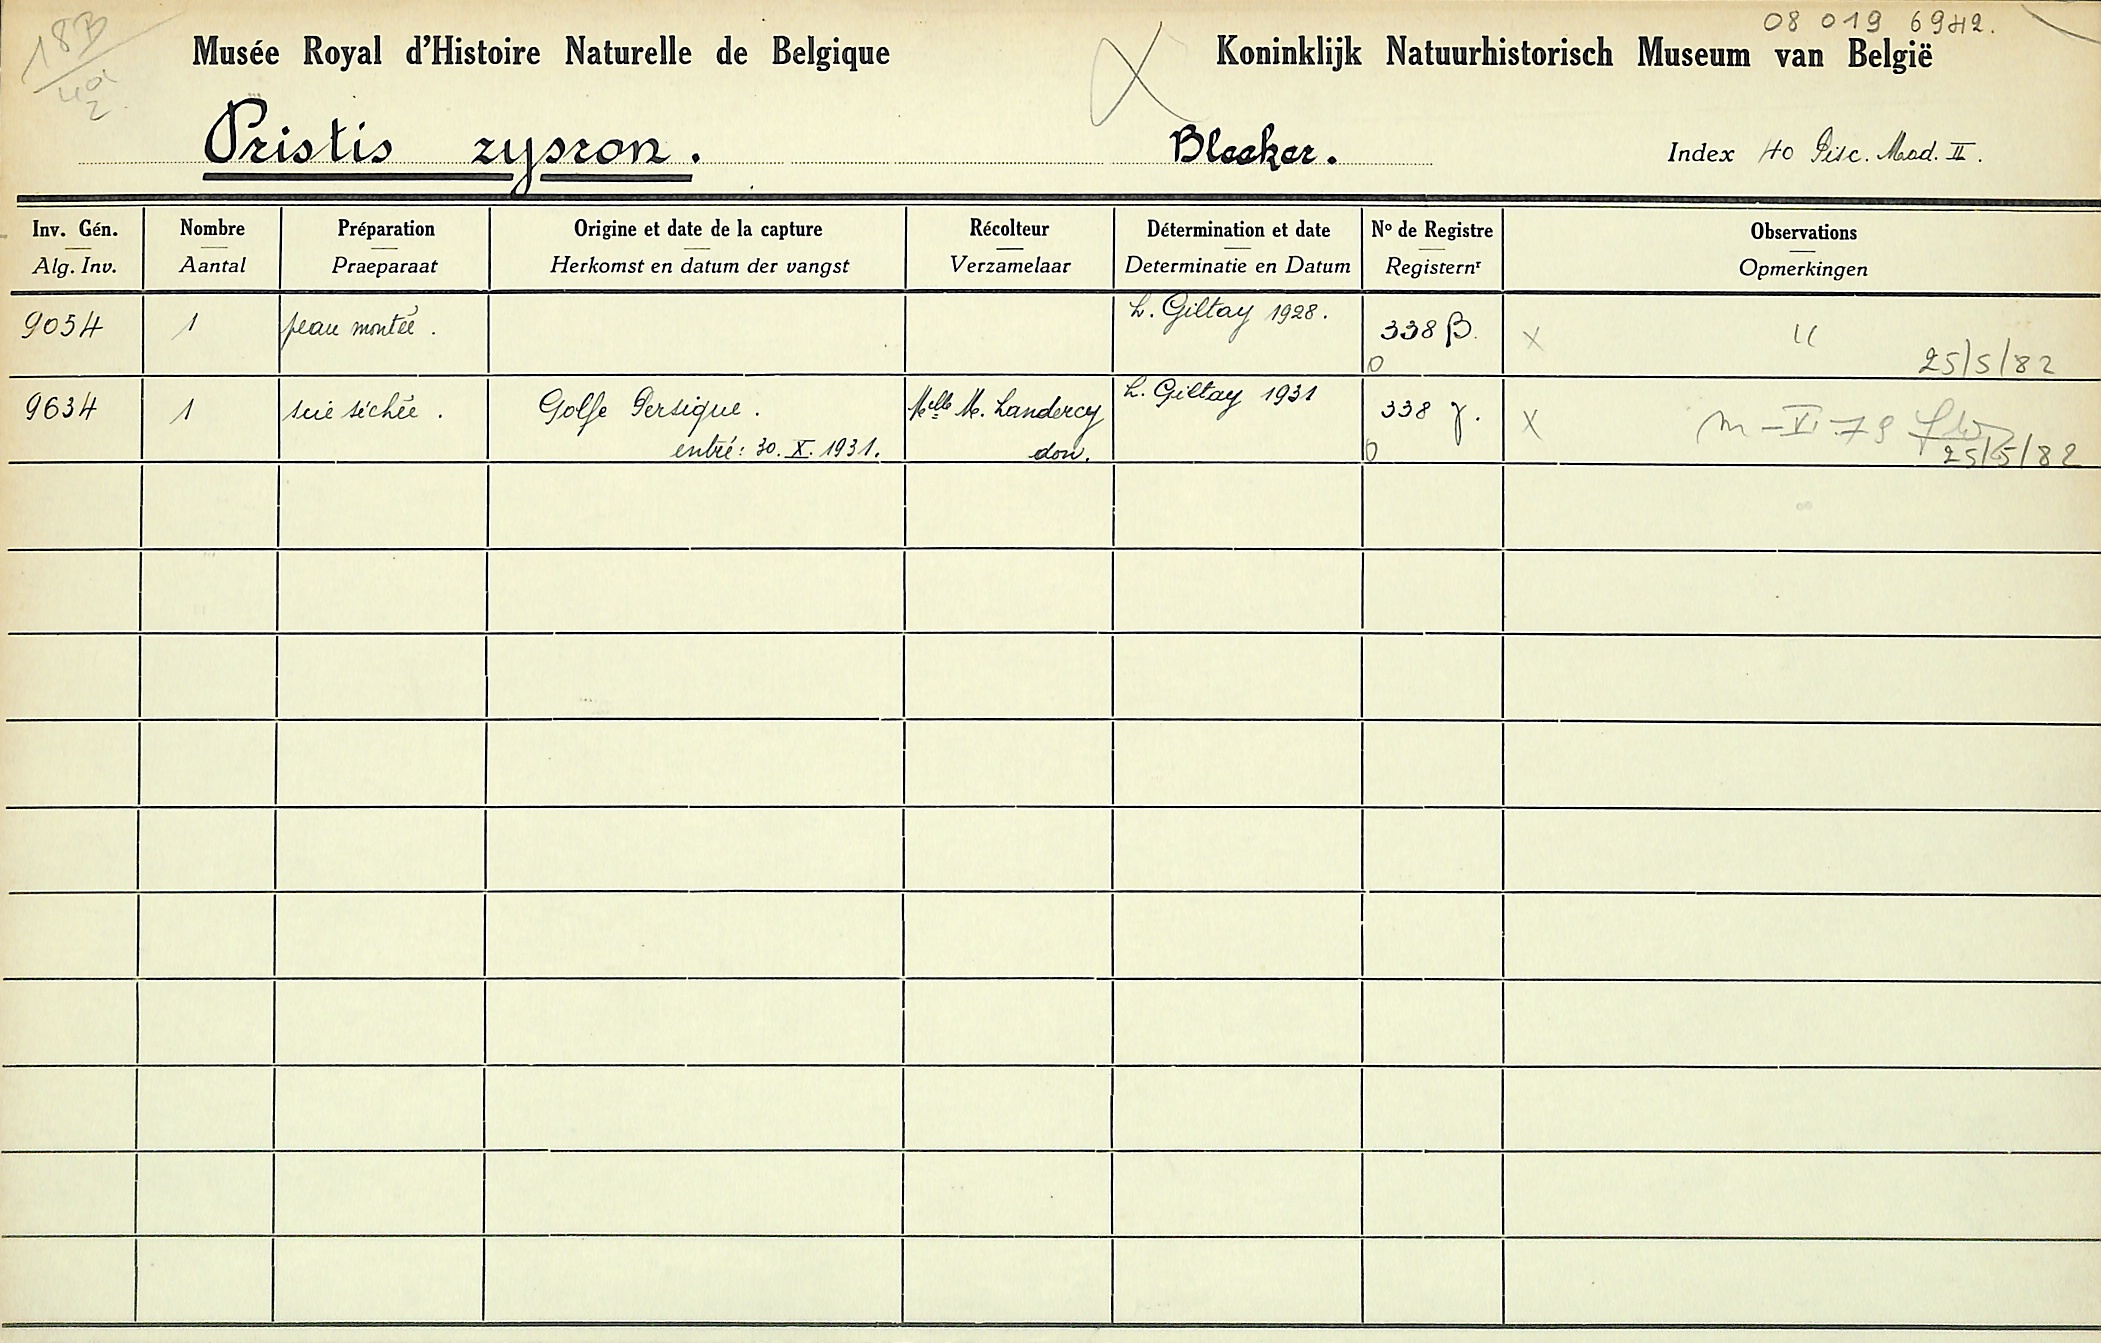 08 019 6942.
18B
Musée Royal d'Histoire Naturelle de Belgique
Koninklijk Natuurhistorisch Museum van België
Pristis zysron.
Bleeker.
Index 40 Pisc. Mad. II.
Inv. Gén. Nombre Préparation Origine et date de la capture Récolteur Détermination et date Nº de Registre Observations
Alg. Inv. Aantal Praeparaat Herkomst en datum der vangst Verzamelaar Determinatie en Datum Registernʳ Opmerkingen
9054 1 peau montée. L. Giltay 1928. 338 β. x "
0 25/5/82
9634 1 scie séchée. Golfe Persique. Melle M. Landercy L. Giltay 1931 338 γ. x m-VI-79
entré: 30.X.1931. don. 0 25/5/82